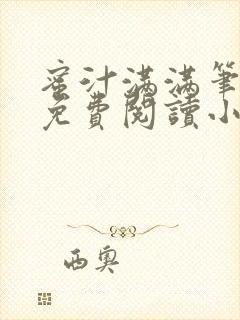 蜜汁满满筆
免費閱讀小
西奥